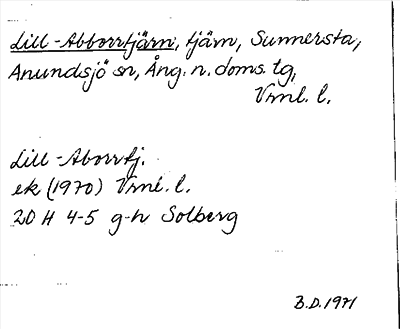 Lill-Abborrtjärn, tjärn, Sunnersta,
Anundsjö sn, Ång. n. doms. tg,
Vrnl. l.
Lill-Aborrtj.
ek (1970) Vrnl. l.
20 H 4-5 g-h Solberg
B.D. 1971